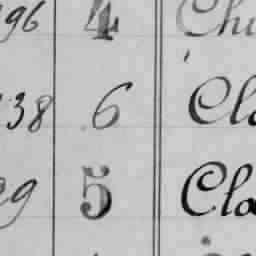 96 4 Chi
38 6 Cla
29 5 Cla